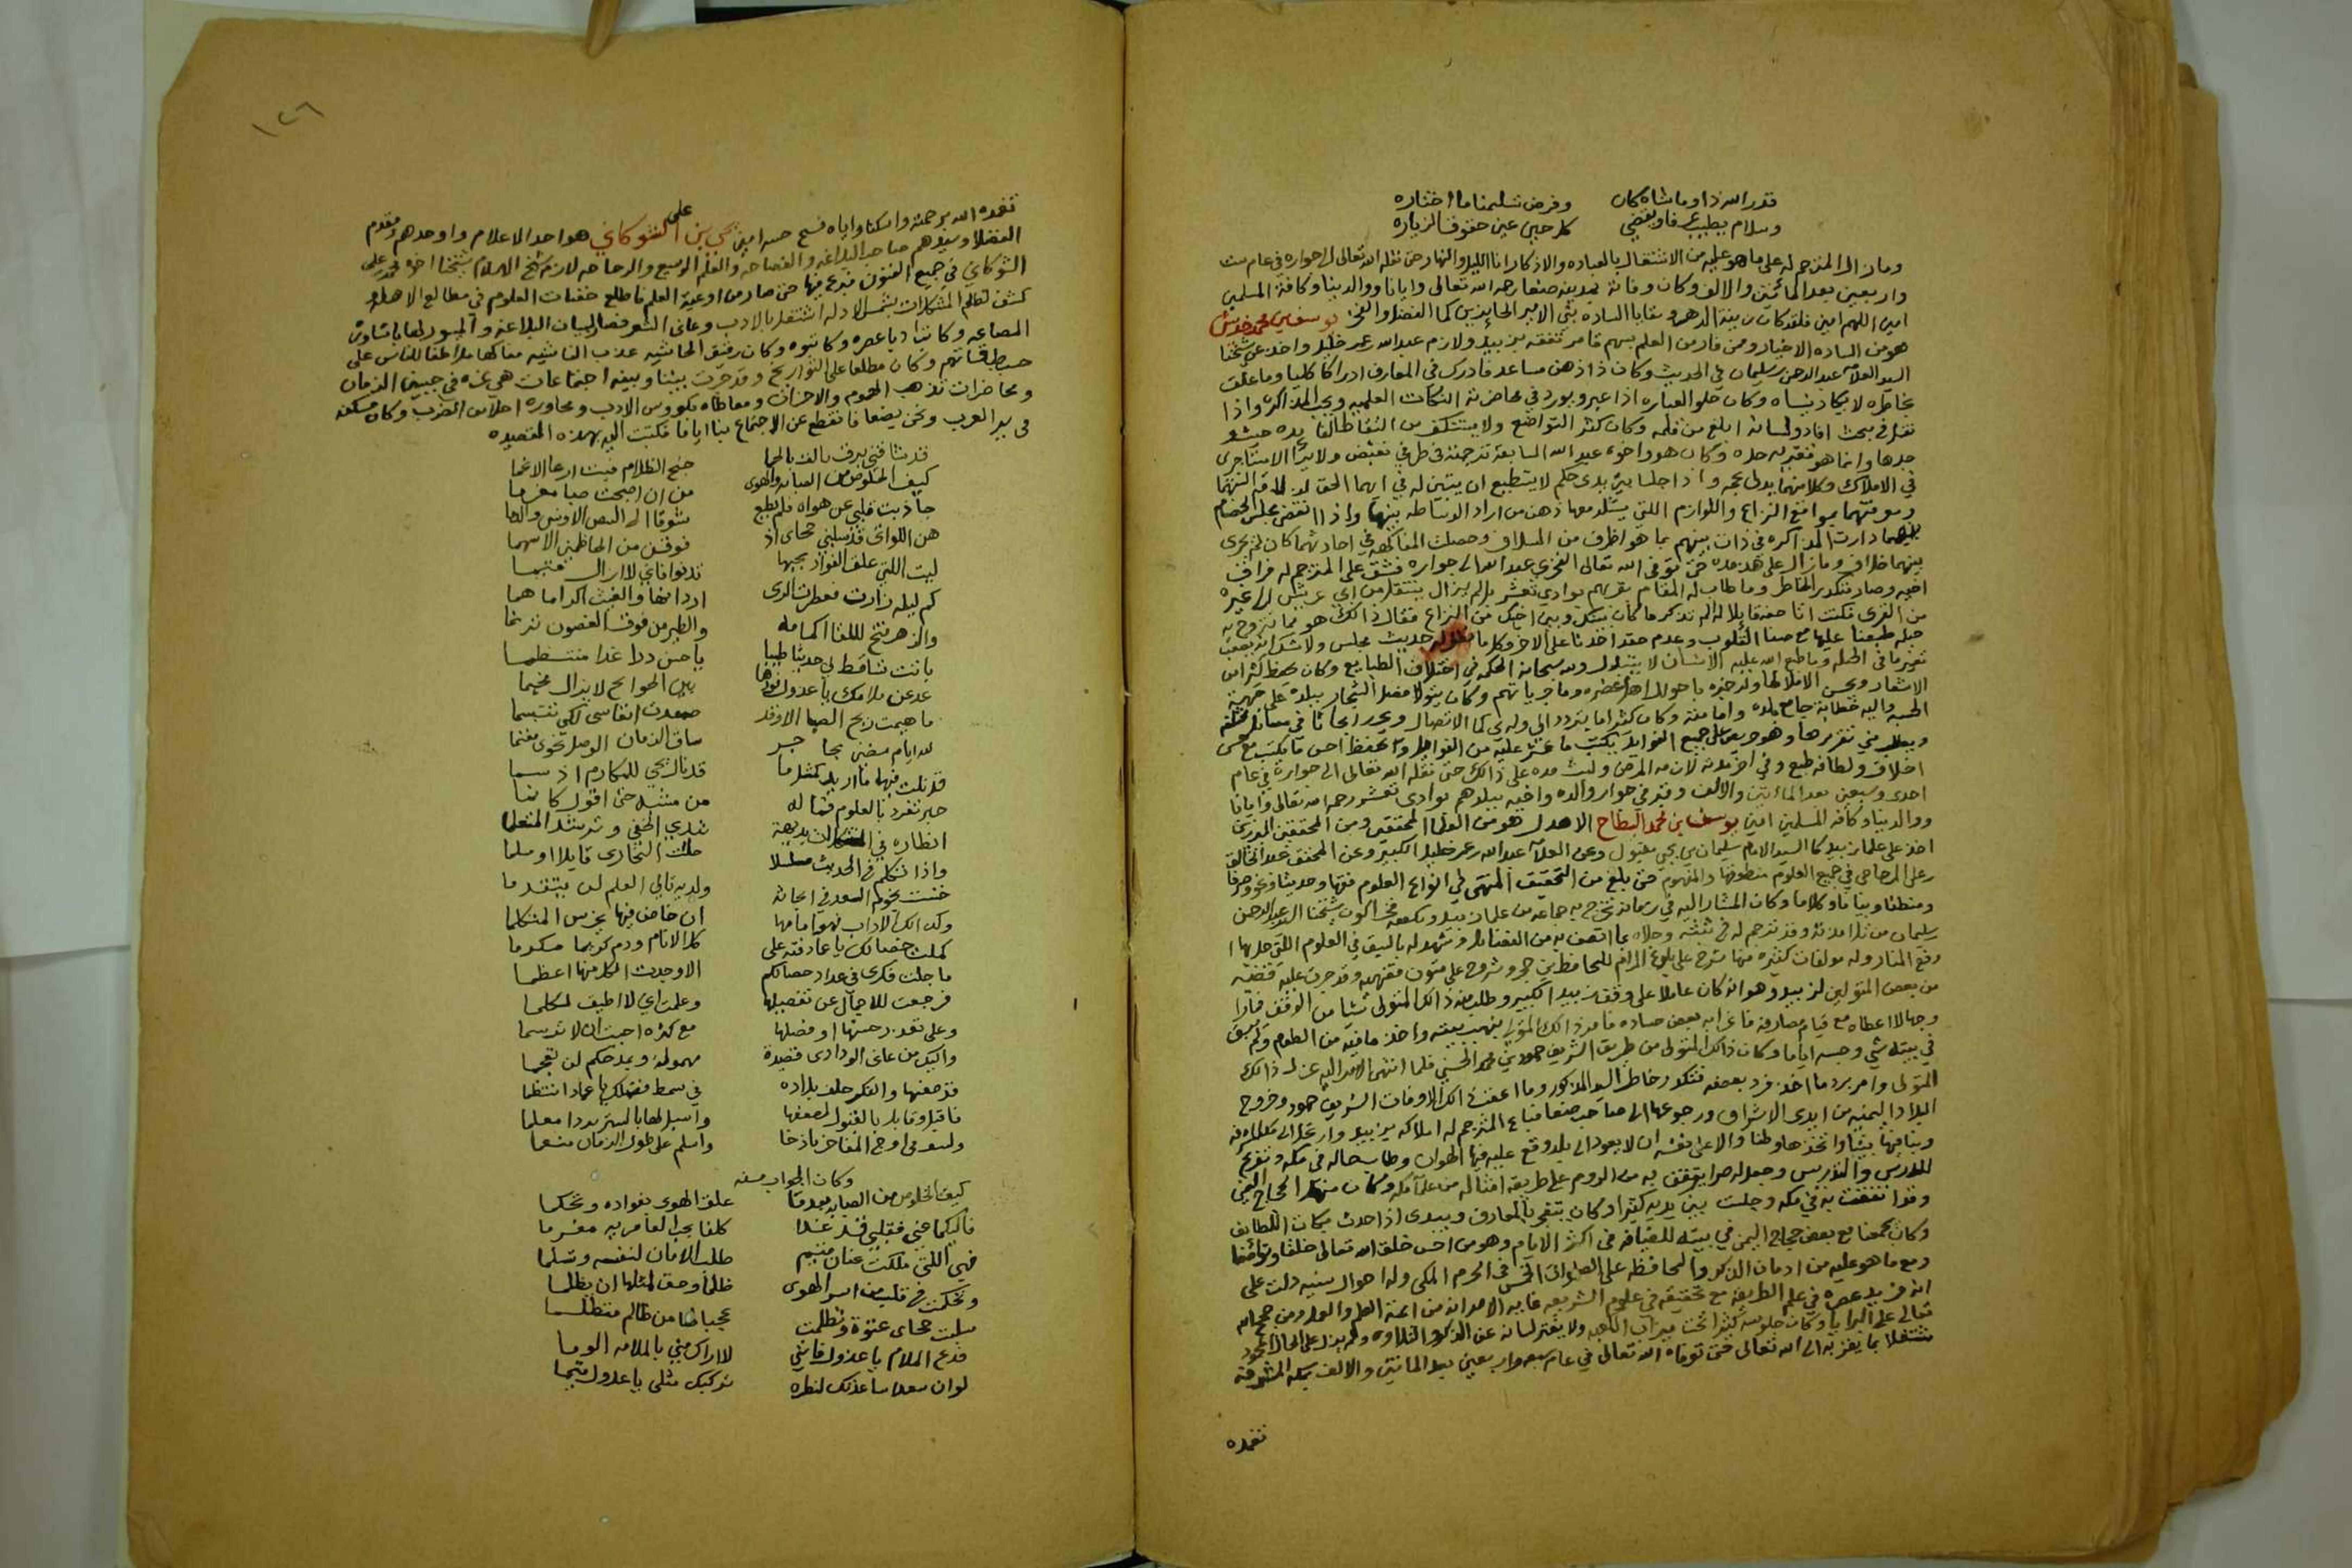 قدر الله ذا وما شاه كان وفرض تسليمنا ما اختاره
وسلام يطيب عرفا ويقضي كل حين عين حقوق الزياره
وما زال المترجم له على ما هو عليه من الاشتغال بالعباده والاذكار اناء الليل والنهار حتى نقله الله تعالى الى جواره في عام ست
واربعين بعد المائتين والالف وكان وفاته بمدينه صنعا رحمه الله تعالى وايانا ووالدينا وكافة المسلمين
امين اللهم امين فلقد كان زينة الدهر وبقايا السادة بني الامير الحايزين كما الفضل والفخر يوسف بن محمد
هو من الساده الاخيار ومن فاز من العلم بسهم قامر تفقه بزبيد ولازم عبدالله عمر خليل واخذ عن شيخنا
السيد العلامه عبدالرحمن بن سليمان في الحديث وكان ذا ذهن مساعد فادرك في المعارف ادراكا كليا وما علق
بخاطره لا يكاد ينساه وكان حلو العباره اذا عبر ويورد في محاضرته النكات العلميه ويحب المذاكره واذا
نقل في بحث افاد ولسانه ابلغ من قلمه وكان كثير التواضع ولا يستنكف من التقاط الفايده حيث
وجدها وانما هو فقير به حده وكان هو واخوه عبدالله السابقة ترجمته في طرفي نقيض ولا يزالا
في الاملاك وكلا منهما يدلي بحجه واذا جلسا بين يدي حكم لا يستطيع ان يتبين له في ايهما الحق
ومعرفتهما بمواقع النزاع واللوازم اللتي يبتلد معها ذهن من اراد الوساطه بينهما واذا انقضى مجلس الخصام
بينهما دارت المذاكره في ذات بينهم بما هو اظرف من السلاف وحصلت المفاكهه في احاديثهما كان لم يجرى
بينهما خلاف وما زال على هذه مده حتى توفى الله تعالى الفخري عبدالله الى جواره فشق على المترجم له فراق
اخيه وصار متكدر الخاطر وما طاب له المقام بقريتهم بوادي تعشر بل لم يزال ينتقل من اي عريش الى غيره
من القرى فكنت انا حفه قايلا له الم تذكر ما كان بينك وبين اخيك من النزاع فقال ذالك هو مما نتروح به
جبله طبعنا عليها مع صفا القلوب وعدم حقد احدنا على الاخر وكلا ما حديث مجلس ولا شك انه يصعب
تغيير ما في الجبله وما طبع الله عليه الانسان لا يتبدل ولله سبحانه الحكمه في اختلاف الطبايع وكان يحفظ كثيرا من
الاشعار ويحسن الاملا لها وله خبره باحوال اهل عصره وماجرياتهم وكان يتولا فصل الشجار ببلده على جهة
الحسبه واليه خطابة جامع بلده وامامته وكان كثيرا ما يتردد الي وله بي كما الاتصال ويحرر ابحاثا في مسائل
ويطلب مني تقريرها وهو حريص على جميع الفوايد يكتب ما عثر عليه من الفوايد ويحفظ احسن ما يكتب مع حسن
اخلاق ولطافه طبع وفي اخر مدته لازمه المرض ولبث مده على ذالك حتى نقله الله تعالى الى جواره في عام
احدى وسبعين بعد المائتين والالف وقبر في جوار والده واخيه ببلدهم بوادي تعشر رحمه الله تعالى وايانا
ووالدينا وكافه المسلمين امين يوسف بن محمد البطاح الاهدل هو من العلما المحققين ومن المحققين المدرسين
اخذ على علما زبيد كا السيد الامام سليمان بن يحي مقبول وعن العلامه عبدالله بن عمر خليل الكبير وعن المحقق عبدالخالق
بن علي المزجاجي في جميع العلوم منطوقها والمفهوم حتى بلغ من التحقيق المنتهى في انواع العلوم فقها وحديثا ونحو وصرفا
ومنطقا وبيانا وكلاما وكان المشار اليه في زمانه تخرج به جماعه من علما زبيد ويكفيه فخرا كون شيخنا السيد عبدالرحمن
سليمان من تلامذته وقد ترجم له في نفسه وحلاه بما اتصف به من الفضايل وشهد له بالسبق في العلوم اللتي حل بها
رفيع المنار وله مولفات كثيره منها شرح على بلوغ المرام للحافظ بن حجر وشروح على متون فقهيه وقد جرت عليه قضيه
من بعض المتولين لزبيد وهو انه كان عاملا على وقف زبيد الكبير وطلب منه ذالك المتولي شيا من الوقف
وجها لا اعطاه مع قيام مصارفه فاغرا به بعض حساده فامر ذالك المتولي بنهب بيته واخذ ما فيه من العلوم ولم يبق
في بيته شي وحبسه اياما وكان ذالك المتولي من طريق الشريف حمود بن محمد الحسني فلما انتهى الامر اليه عزل ذالك
المتولي وامر برد ما اخذ فرد بعضه فتكدر خاطر السيد المذكور وما اعقب ذالك الا وفات الشريف حمود وخروج
البلاد اليمنيه من ايدي الاشراف ورجوعها الى صاحب صنعا فباع المترجم له املاكه من زبيد وارتحل الى مكة المشرفه
وبنا فيها بيتا واتخذها وطنا والاعلى نفسه ان لا يعود الى بلد وقع عليه فيها الهوان وطاب حاله في مكه وتفرغ
للدرس والتدريس وجعل له صرا يتفق به من الروم على طريقة امثاله من علماء مكه وكان
وقد اتفقت به في مكه وجلست بين يديه كثيرا وكان يتفجر بالمعارف ويبدى اذا حدث نكات اللطايف
وكان يجمعنا مع بعض حجاج اليمن في بيته للضيافه في اكثر الايام وهو من احسن خلق الله تعالى خلقا وتواضعا
ومع ما هو عليه من ادمان الذكر والمحافظه على الصلوات الخمس في الحرم المكي وله احوال سنيه دلت على
انه فريد عصره في علم الطريقه مع تحقيقه في علوم الشريعه غايه الامر انه من ائمة العلم والعمل ومن حجج الله
تعالى على البرايا وكان جلوسه كثيرا تحت ميزاب الكعبه ولا يفتر لسانه عن الذكر والتلاوه ولم يزل على الحال المحمود
مشتغلا بما يقربه الى الله تعالى حتى توفاه الله تعالى في عام سبعه واربعين بعد المائتين والالف بمكه المشرفة
تغمده
١٢٦
تغمده الله برحمته واسكننا واياه فسيح جنته امين يحي بن علي الشوكاني هو احد الاعلام واوحدهم ومقدم
الفضلا وسيدهم صاحب البلاغه والفصاحه والقلم الوسيع والرجاحه لازم شيخ الاسلام شيخنا اخوه محمد بن علي
الشوكاني في جميع الفنون فبرع فيها حتى صار من اوعية العلم فاطلع خفيات العلوم في مطالع الاهله
كشف لعالم المشكلات بشمس الادله اشتغل بالادب وعانى الشعر فصار لبيان البلاغه
المصاعه وكاتب ادبا عصره وكاتبوه وكان رقيق الحاشيه عذب الناشيه مفاكها ملاطفا للناس على
حسب طبقاتهم وكان مطلعا على التواريخ وقد جرت بيننا وبينه اجتماعات هي غره في جبين الزمان
ومحاضرات تذهب الهموم والاحزان ومعاطاه بكووس الادب ومحاوره احلا من الضرب وكان مسكنه
في بير العزب ونحن بصنعا فانقطع عن الاجتماع بنا اياما فكتبت اليه بهذه القصيده
قد شاقني برق تالق بالحما جنح الظلام فبت ارعا الانجما
كيف الخلوص من الصبابه والهوى من ان اصبحت صبا مغرما
جاذبت قلبي عن هواه فلم يطع شوقا الى البيض الاوانس والدما
هن اللواتي قد سلبني حجاى اذ فوقن من الحاظهن الاسهما
ليت اللتي علق الفواد بحبها تدنوا فاني لا ازال متيما
كم ليله زارت فعطرت الدى اردانها والغيث اكداما هما
والزهر فتح لللقا اكمامه والطير من فوق الغصون ترنما
باتت تساقط لي حديثا طيبا يا حسن دراً غدا منتظما
عد عن ملامك يا عدول بين الجوانح لا يزال مخيما
ما هيمت ريح الصبا الا وقد صعدت انفاسى لكي تتبسما
لله ايام مضى بحاجر ساق الزمان الوصل نحوى مغنما
قد نلت فيها ما اريد كمثل ما قد نال يحي للمكارم اذ سما
حبر تفرد بالعلوم فما له من مشبه حتى اقول كانما
انظاره في المشكلات بديهة تبدي الخفي وترشد المتعلما
واذا تكلم في الحديث مسلسلا خلت البخارى قايلا او مسلما
خنست نجوم السعد في ابحاثه ولديه تالي العلم لن يتقدما
وكذالك الاداب فهو امامها ان خاض فيها يخرس المتكلما
كملت خصالك يا عماد فته على كل الانام ودم كريما مكرما
ما جلت فكرى في عداد خصالكم الا وجدت الكل منها اعظما
فرجعت للاجمال عن تفصيلها وعلمت اني لا اطيق لكلما
وعلى تعدد حسنها او فضلها مع كثره اجبت ان لا ترسما
واليك من عانى الوداد قصيدة مهمولة وبمدحكم لن تعجما
قد صغتها والفكر حلف بلاده في سمط فضلك يا عماد انتظما
فاقبل وقابل بالقبول لضعفها واسبل لها بالستر بردا معلما
ولتبق في اوج المفاخر باذخا واسلم على طول الزمان منعما
وكان الجواب منه
كيف الخلوص من الصبابه بعدما علق الهوى بفواده وتحكما
فاليكما عني فقلبي قد غدا كلفا بحب العامريه مغرما
فهي اللتي ملكت عنان متيم طلب الامان لنفسه وتسلما
وتحكمت في قلب من اسر الهوى ظلما وحق لمثلها ان يظلما
سلبت حجاى عنوة وتظلمت عجبا لها من ظالم متظلما
فدع الملام يا عذول فانني لا اراك مني بالملامه الوما
لو ان سعدا ساعدتك لنظره تركتك مثلي يا عدول متيما